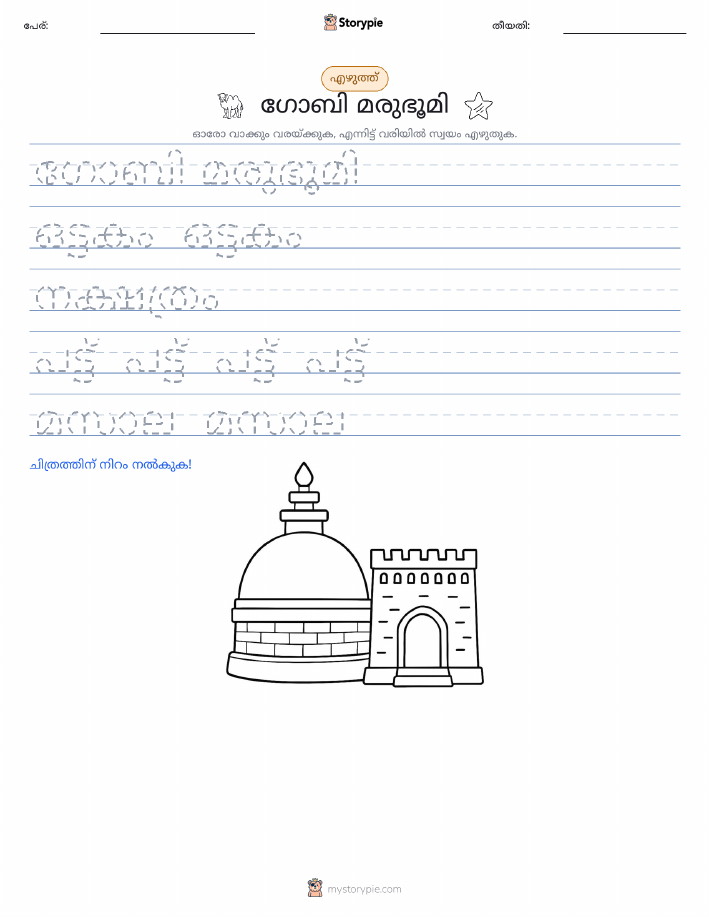 പേര്:
Storypie
തീയതി:
എഴുത്ത്
ഗോബി മരുഭൂമി
ഓരോ വാക്കും വരയ്ക്കുക, എന്നിട്ട് വരിയിൽ സ്വയം എഴുതുക.
ഗോബി മരുഭൂമി
ഒട്ടകം ഒട്ടകം
നക്ഷത്രം
പട്ട് പട്ട് പട്ട് പട്ട്
മസാല മസാല
ചിത്രത്തിന് നിറം നൽകുക!
mystorypie.com